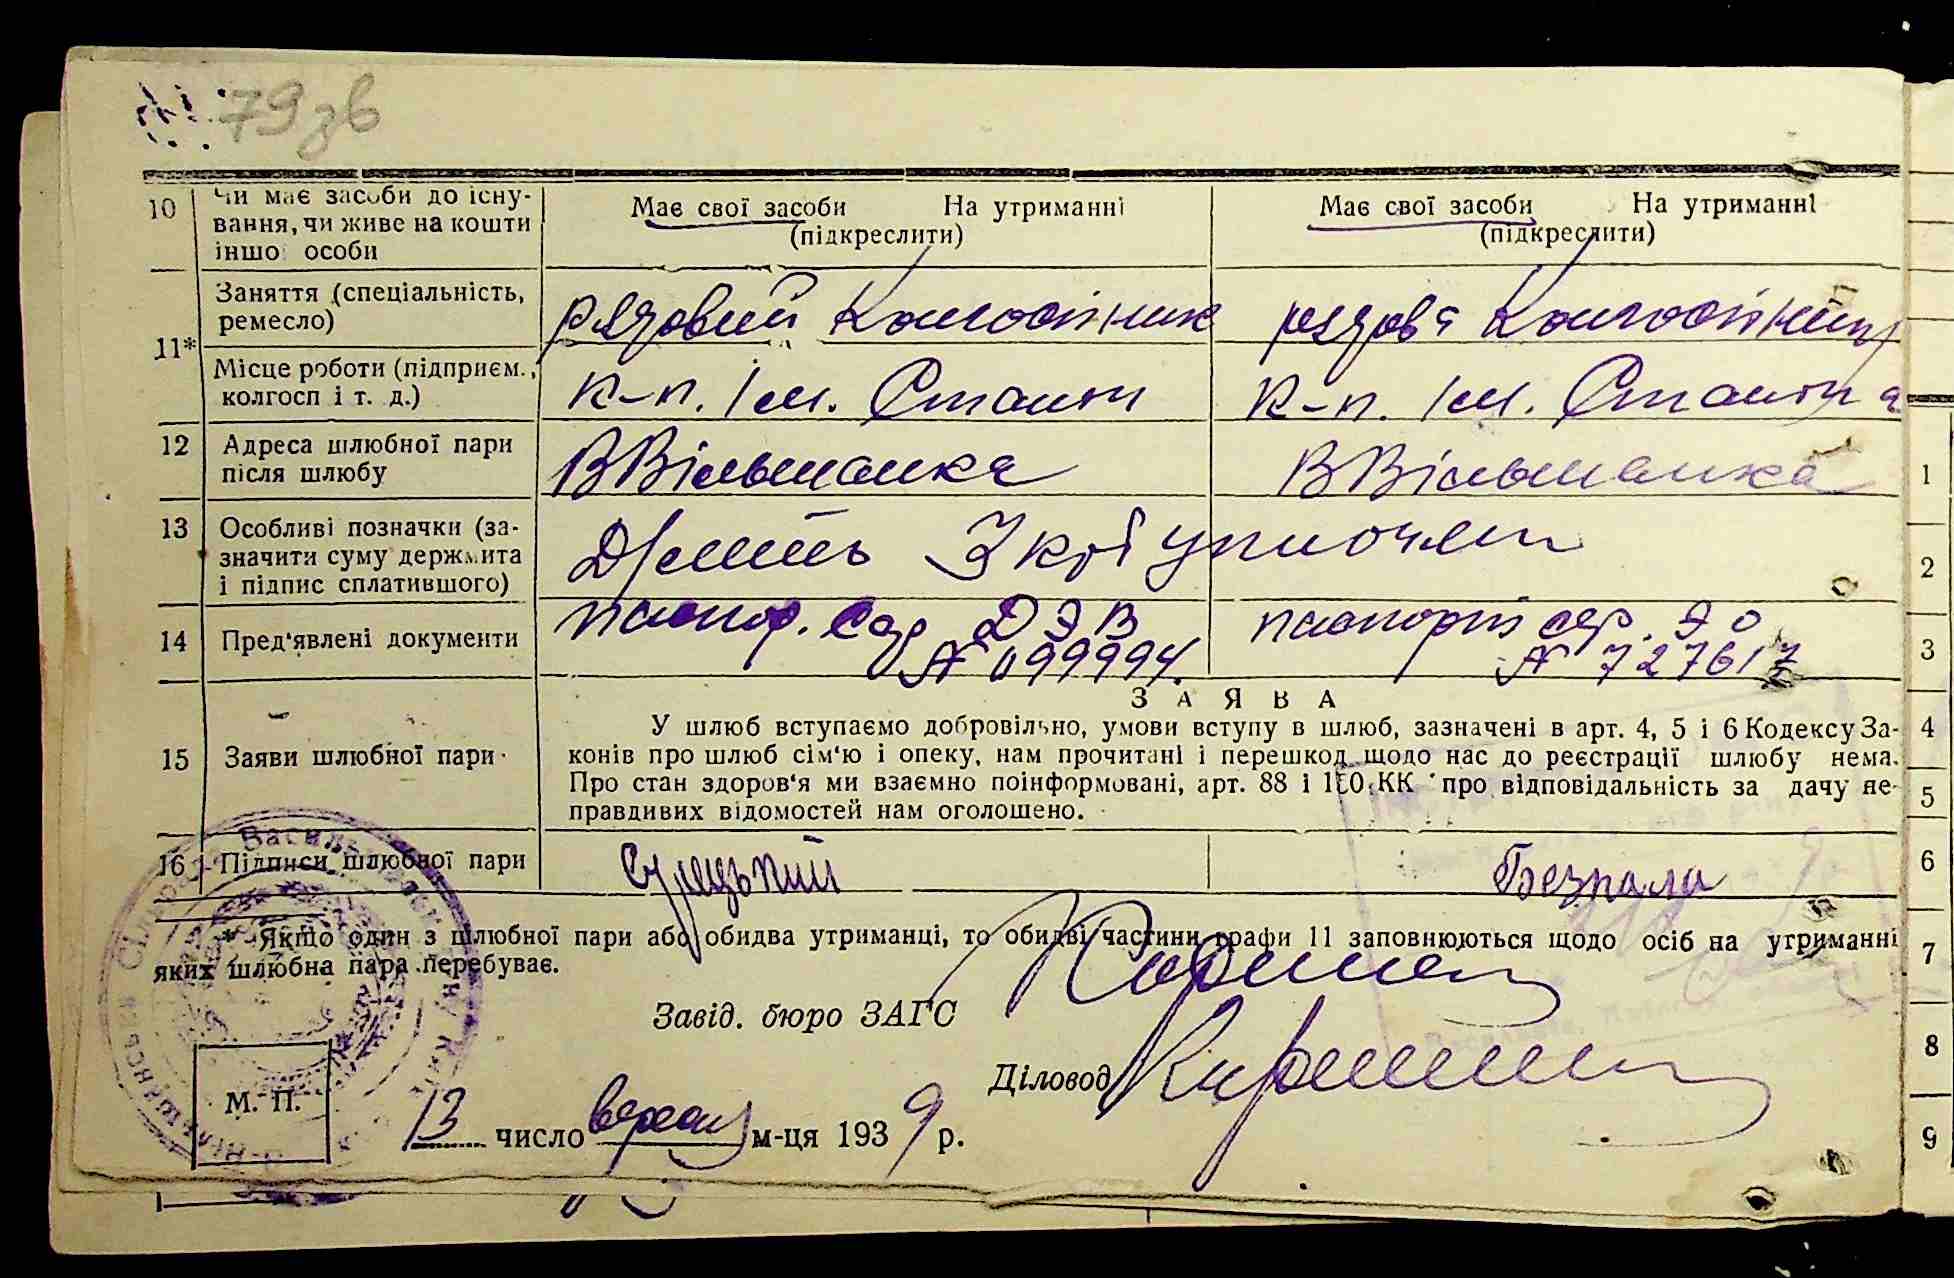 79 зв
10 Чи має засоби до існу- Має свої засоби На утриманні Має свої засоби На утриманні
вання, чи живе на кошти (підкреслити) (підкреслити)
іншо особи
Заняття (спеціальність, рядовий Колгоспник рядова Колгоспниця
ремесло)
11*
Місце роботи (підприєм., к-п. Ім. Сталін к-п. Ім. Сталіна
колгосп і т. д.)
12 Адреса шлюбної пари ВВільшанка ВВільшанка
після шлюбу
13 Особливі позначки (за-
значити суму держмита
і підпис сплатившого)
14 Пред'явлені документи паспор. ДЭВ паспорт сер. ЭО
№ 099994. № 727617
З А Я В А
15 Заяви шлюбної пари У шлюб вступаємо добровільно, умови вступу в шлюб, зазначені в арт. 4, 5 і 6 Кодексу За-
конів про шлюб сім'ю і опеку, нам прочитані і перешкод щодо нас до реєстрації шлюбу нема.
Про стан здоров'я ми взаємно поінформовані, арт. 88 і КК про відповідальність за дачу не-
правдивих відомостей нам оголошено.
16 Підписи шлюбної пари Безпала
* Якщо один з шлюбної пари або обидва утриманці, то обидві частини графи 11 заповнюються щодо осіб на утриманні
яких шлюбна пара перебуває.
Завід. бюро ЗАГС
Діловод
М. П.
13 число вересня м-ця 1939 р.
1
2
3
4
5
6
7
8
9